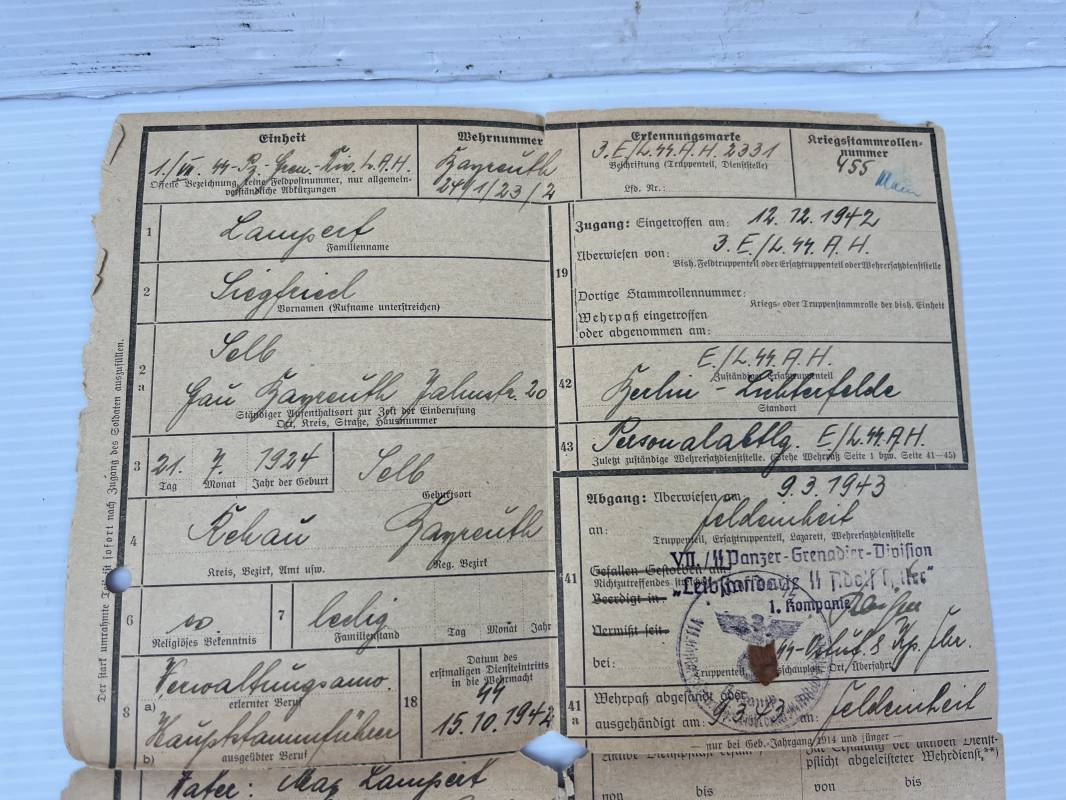 Einheit
1./VII. SS-Pz. Gren.-Div. L.A.H.
Offene Bezeichnung, keine Feldpostnummer, nur allgemein-
verständliche Abkürzungen
Wehrnummer
Bayreuth
24/1/23/2
Erkennungsmarke
3. E/L.SS.A.H. 2331
Beschriftung (Truppenteil, Dienststelle)
Lfd. Nr.:
Kriegsstammrollen-
nummer
455
Der stark umrahmte Teil ist sofort nach Zugang des Soldaten auszufüllen.
1
Lampert
Familienname
2
Siegfried
Vornamen (Rufname unterstreichen)
2
a
Selb
Gau Bayreuth Jahnstr. 20
Ständiger Aufenthaltsort zur Zeit der Einberufung
Ort, Kreis, Straße, Hausnummer
3
21. 7. 1924
Tag Monat Jahr der Geburt
Selb
Geburtsort
4
Rehau Bayreuth
Kreis, Bezirk, Amt usw. Reg. Bezirk
6
Religiöses Bekenntnis
7
ledig
Familienstand
Tag Monat Jahr
8
Verwaltungsanw.
a) erlernter Beruf
Hauptstammführer
b) ausgeübter Beruf
18
Datum des
erstmaligen Diensteintritts
in die Wehrmacht
SS
15.10.1942
Vater: Max Lampert
19
Zugang: Eingetroffen am: 12.12.1942
Überwiesen von: 3. E./L.SS.A.H.
Bish. Feldtruppenteil oder Ersatztruppenteil oder Wehrersatzdienststelle
Dortige Stammrollennummer:
Kriegs- oder Truppenstammrolle der bish. Einheit
Wehrpaß eingetroffen
oder abgenommen am:
42
E/L.SS.A.H.
Zuständiger Ersatztruppenteil
Berlin - Lichterfelde
Standort
43
Personalabtlg. E/L.SS.A.H.
Zuletzt zuständige Wehrersatzdienststelle. (Siehe Wehrpaß Seite 1 bzw. Seite 41—45)
41
Abgang: Überwiesen am 9.3.1943
an: Feldeinheit
Truppenteil, Ersatztruppenteil, Lazarett, Wehrersatzdienststelle
VII./SS Panzer-Grenadier-Division
Gefallen Gestorben am
Nichtzutreffendes
„Leibstandarte SS Adolf Hitler"
Beerdigt in
1. Kompanie
Vermißt seit
bei:
41
a
Wehrpaß abgesandt oder
ausgehändigt am: 9.3.43 an: Feldeinheit
— nur bei Geb.-Jahrgang 1914 und jünger —
aktive Dienstpflicht
zur Erfüllung der aktiven Dienst-
pflicht abgeleisteter Wehrdienst,**)
von bis
von bis